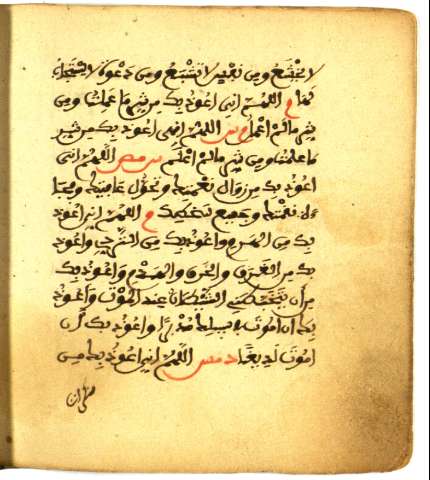 لا يخشع ومن نفس لا تشبع ومن دعوة لا يستجاب
لها م اللهم اني اعوذ بك من شر ما عملت ومن
شر ما لم اعمل م س اللهم اني اعوذ بك من شر
ما علمت ومن شر ما لم اعلم س مص اللهم اني
اعوذ بك من زوال نعمتك وتحول عافيتك وفجا
ءة نقمتك وجميع سخطك م اللهم اني اعوذ
بك من الهرم واعوذ بك من التردي واعوذ
بك من الغرق والحرق والهدم واعوذ بك
من أن يتخبطني الشيطان عند الموت واعوذ
بك ان اموت في سبيلك مدبرا واعوذ بك أن
اموت لديغا د مس اللهم اني اعوذ بك من
منكرات